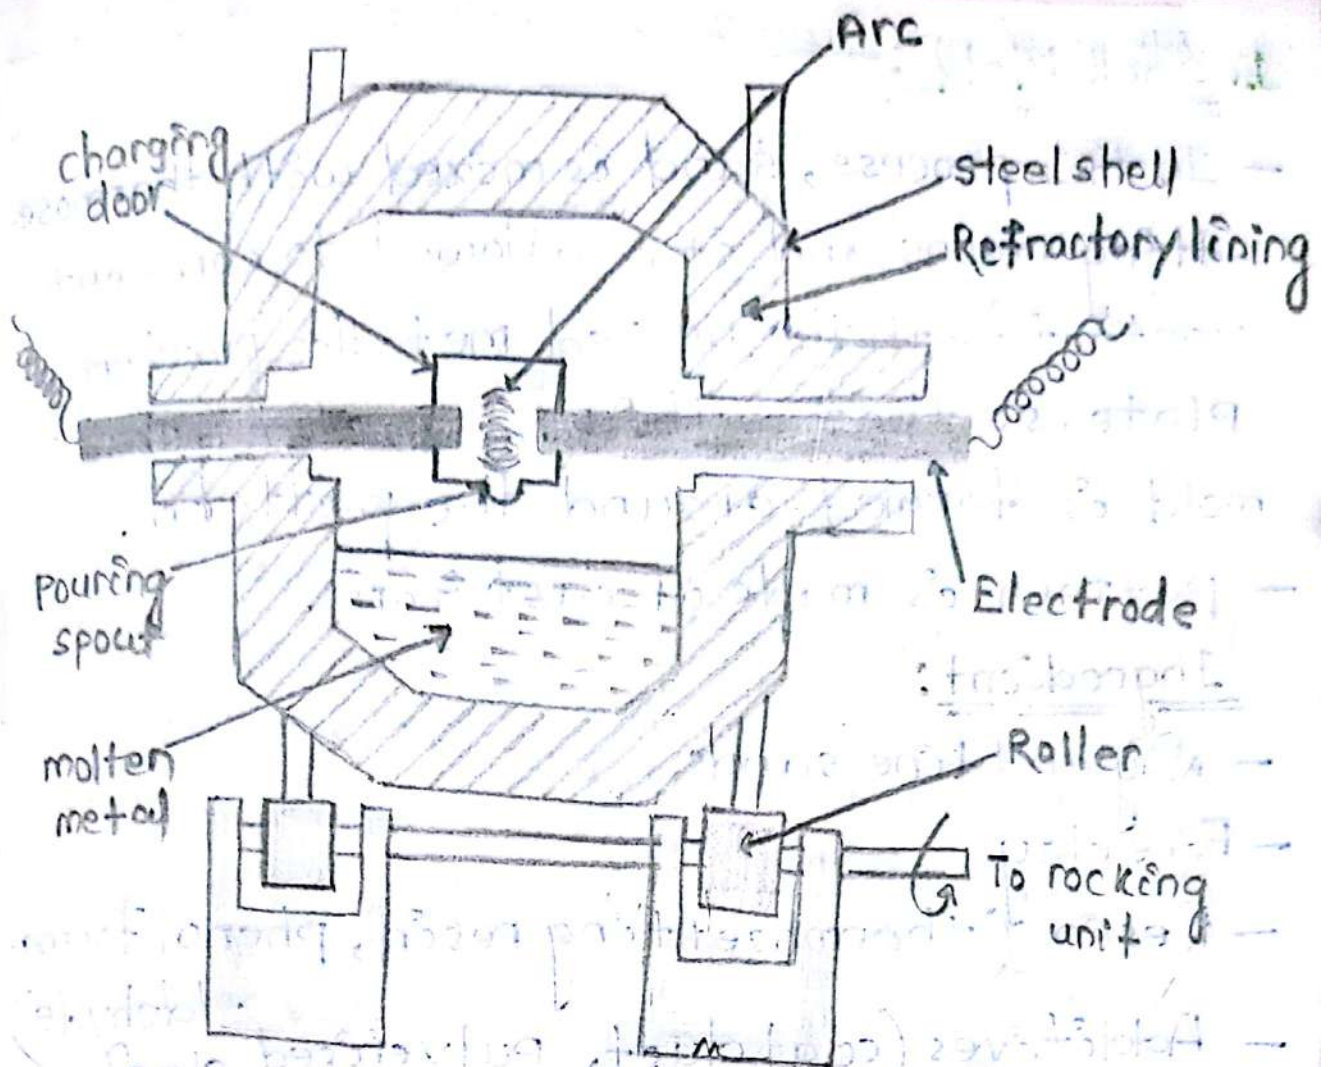 Arc
charging
door
steel shell
Refractory lining
Electrode
pouring
spout
molten
metal
Roller
To rocking
unit